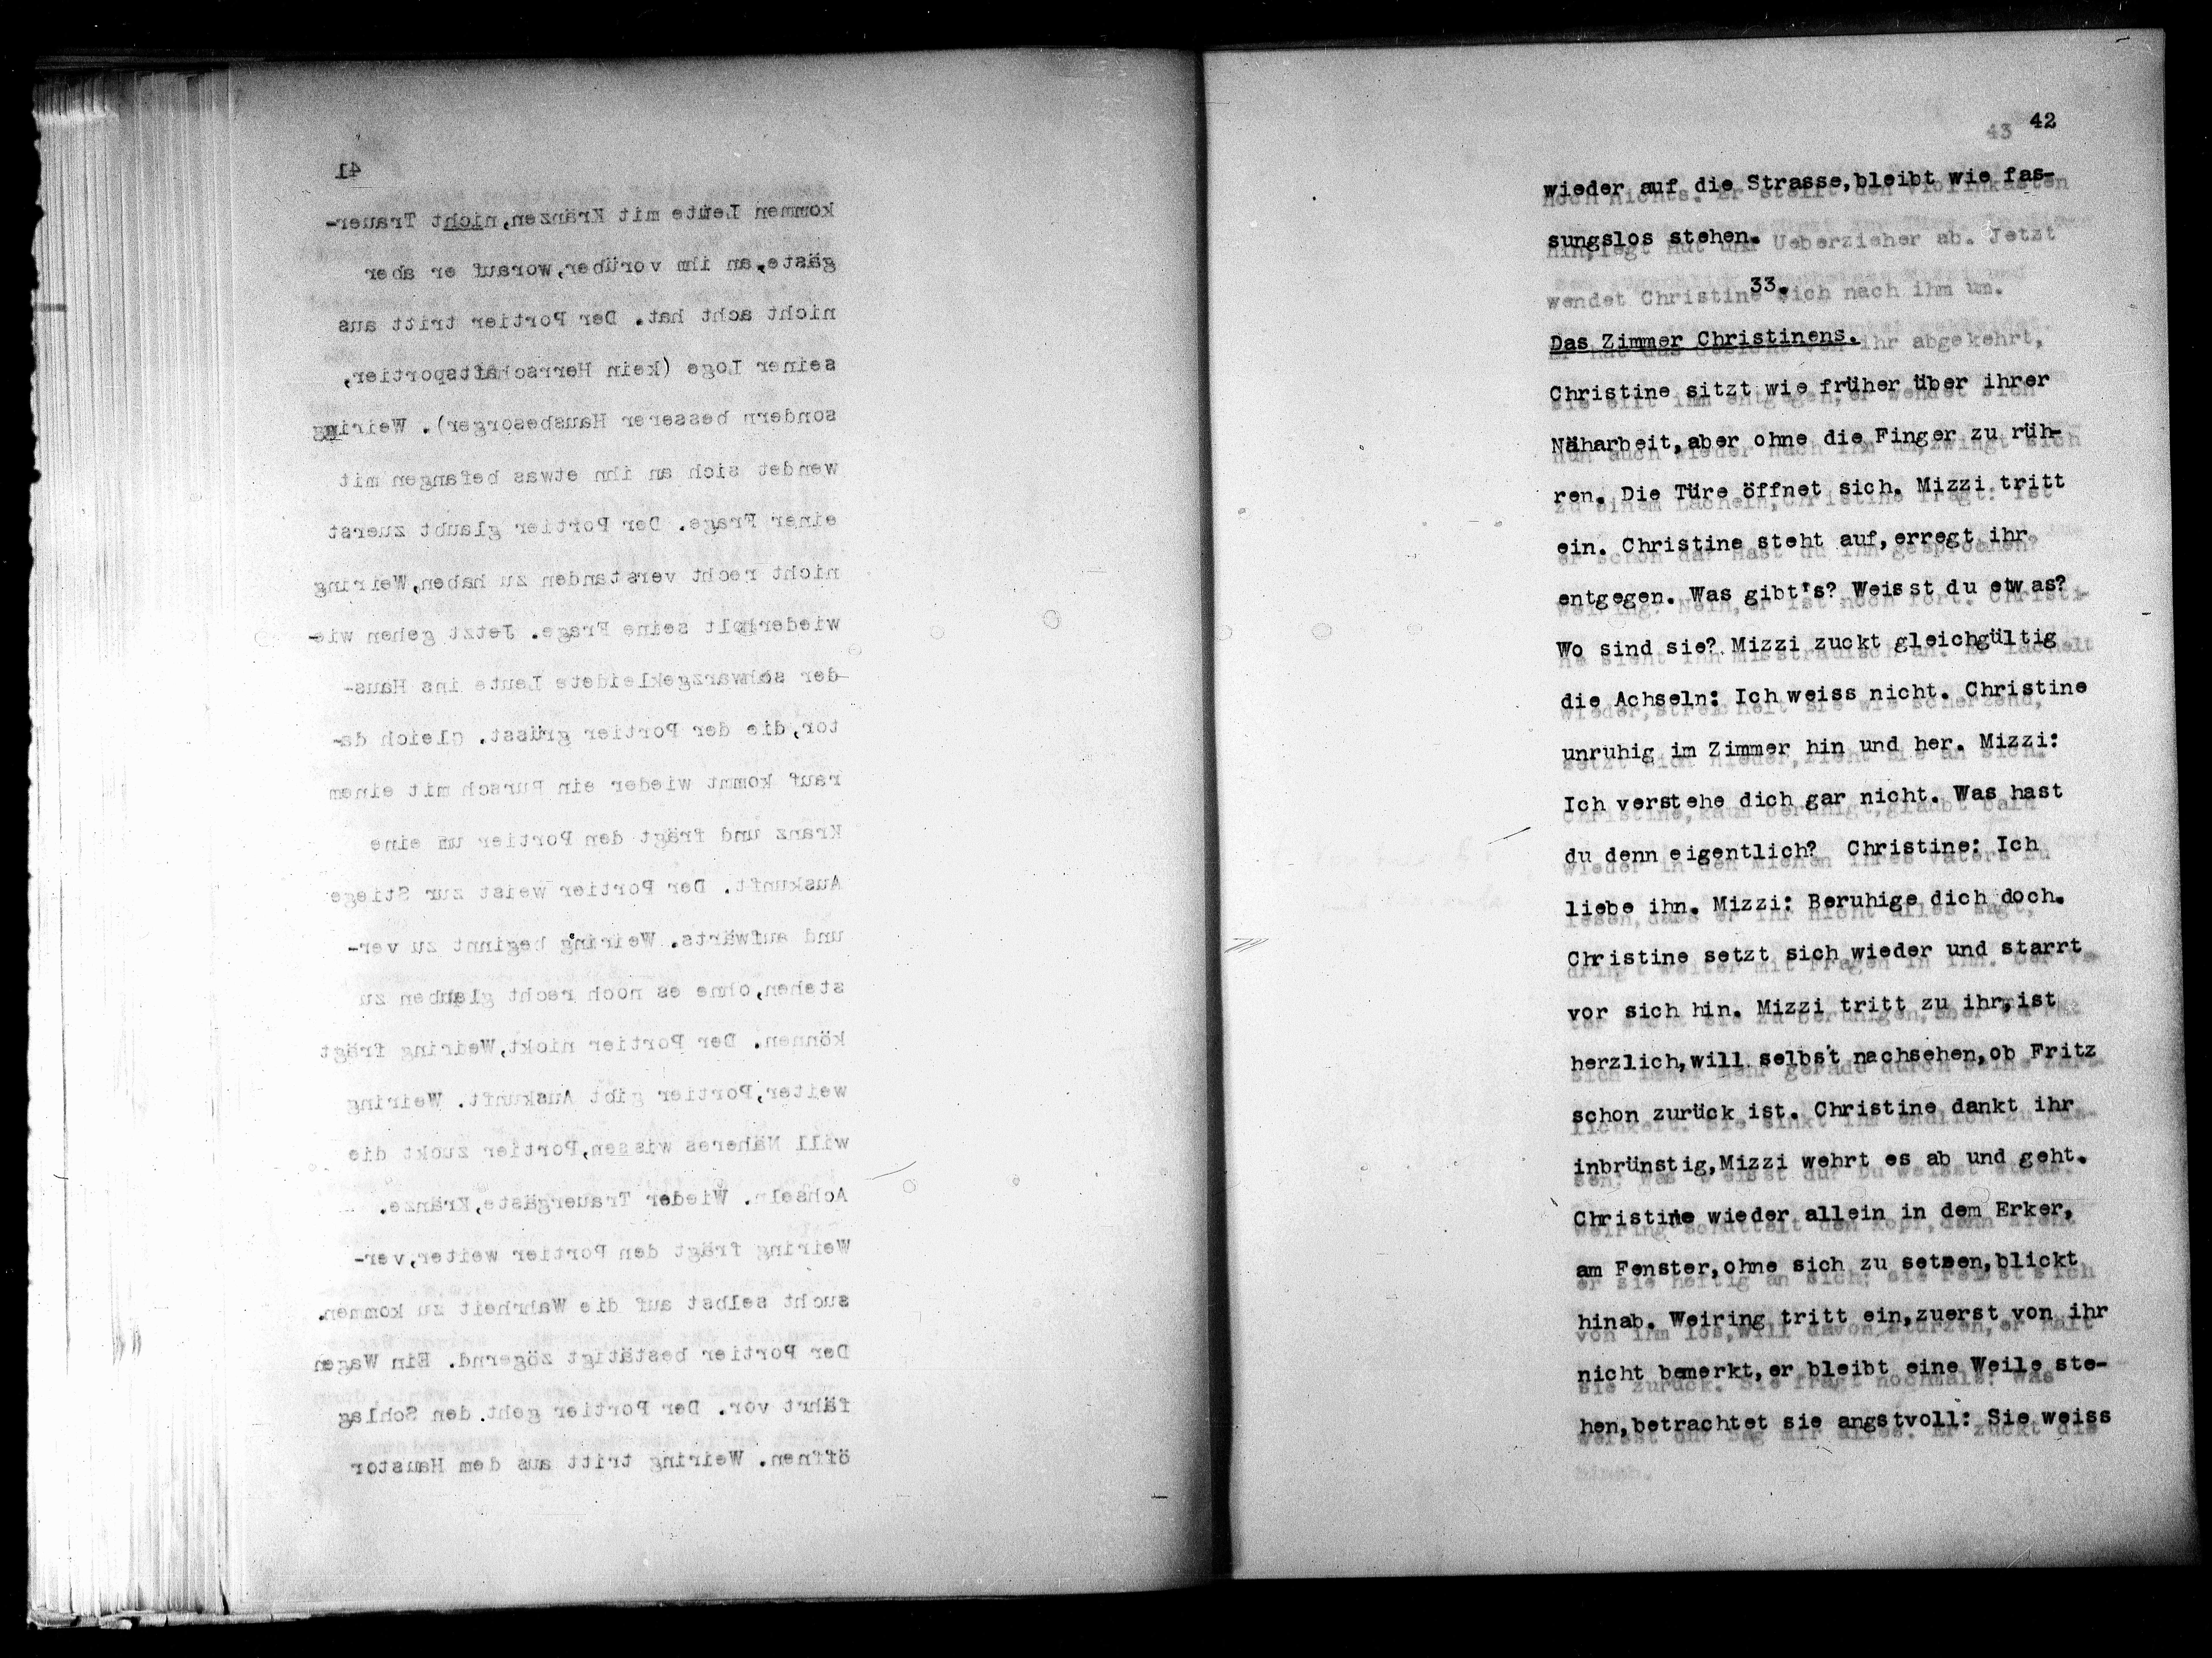 41
kommen Leute mit Kränzen, nicht Trauer-
gäste, an ihm vorüber, worauf er aber
nicht acht hat. Der Portier tritt aus
seiner Loge (kein Herrschaftsportier,
sondern besserer Hausbesorger). Weiring
wendet sich an ihn etwas befangen mit
einer Frage. Der Portier glaubt zuerst
nicht recht verstanden zu haben, Weiring
wiederholt seine Frage. Jetzt gehen wie-
der schwarzgekleidete Leute ins Haus-
tor, die der Portier grüsst. Gleich da-
rauf kommt wieder ein Bursch mit einem
Kranz und frägt den Portier um eine
Auskunft. Der Portier weist zur Stiege
und aufwärts. Weiring beginnt zu ver-
stehen, ohne es noch recht glauben zu
können. Der Portier nickt, Weiring frägt
weiter, Portier gibt Auskunft. Weiring
will Näheres wissen, Portier zuckt die
Achseln. Wieder Trauergäste, Kränze.
Weiring frägt den Portier weiter, ver-
sucht selbst auf die Wahrheit zu kommen.
Der Portier bestätigt zögernd. Ein Wagen
fährt vor. Der Portier geht den Schlag
öffnen. Weiring tritt aus dem Haustor
43 42
wieder auf die Strasse, bleibt wie fas-
sungslos stehen.
33.
Das Zimmer Christinens.
Christine sitzt wie früher über ihrer
Näharbeit, aber ohne die Finger zu rüh-
ren. Die Türe öffnet sich. Mizzi tritt
ein. Christine steht auf, erregt ihr
entgegen. Was gibt's? Weisst du etwas?
Wo sind sie? Mizzi zuckt gleichgültig
die Achseln: Ich weiss nicht. Christine
unruhig im Zimmer hin und her. Mizzi:
Ich verstehe dich gar nicht. Was hast
du denn eigentlich? Christine: Ich
liebe ihn. Mizzi: Beruhige dich doch.
Christine setzt sich wieder und starrt
vor sich hin. Mizzi tritt zu ihr, ist
herzlich, will selbst nachsehen, ob Fritz
schon zurück ist. Christine dankt ihr
inbrünstig, Mizzi wehrt es ab und geht.
Christine wieder allein in dem Erker,
am Fenster, ohne sich zu setzen, blickt
hinab. Weiring tritt ein, zuerst von ihr
nicht bemerkt, er bleibt eine Weile ste-
hen, betrachtet sie angstvoll: Sie weiss